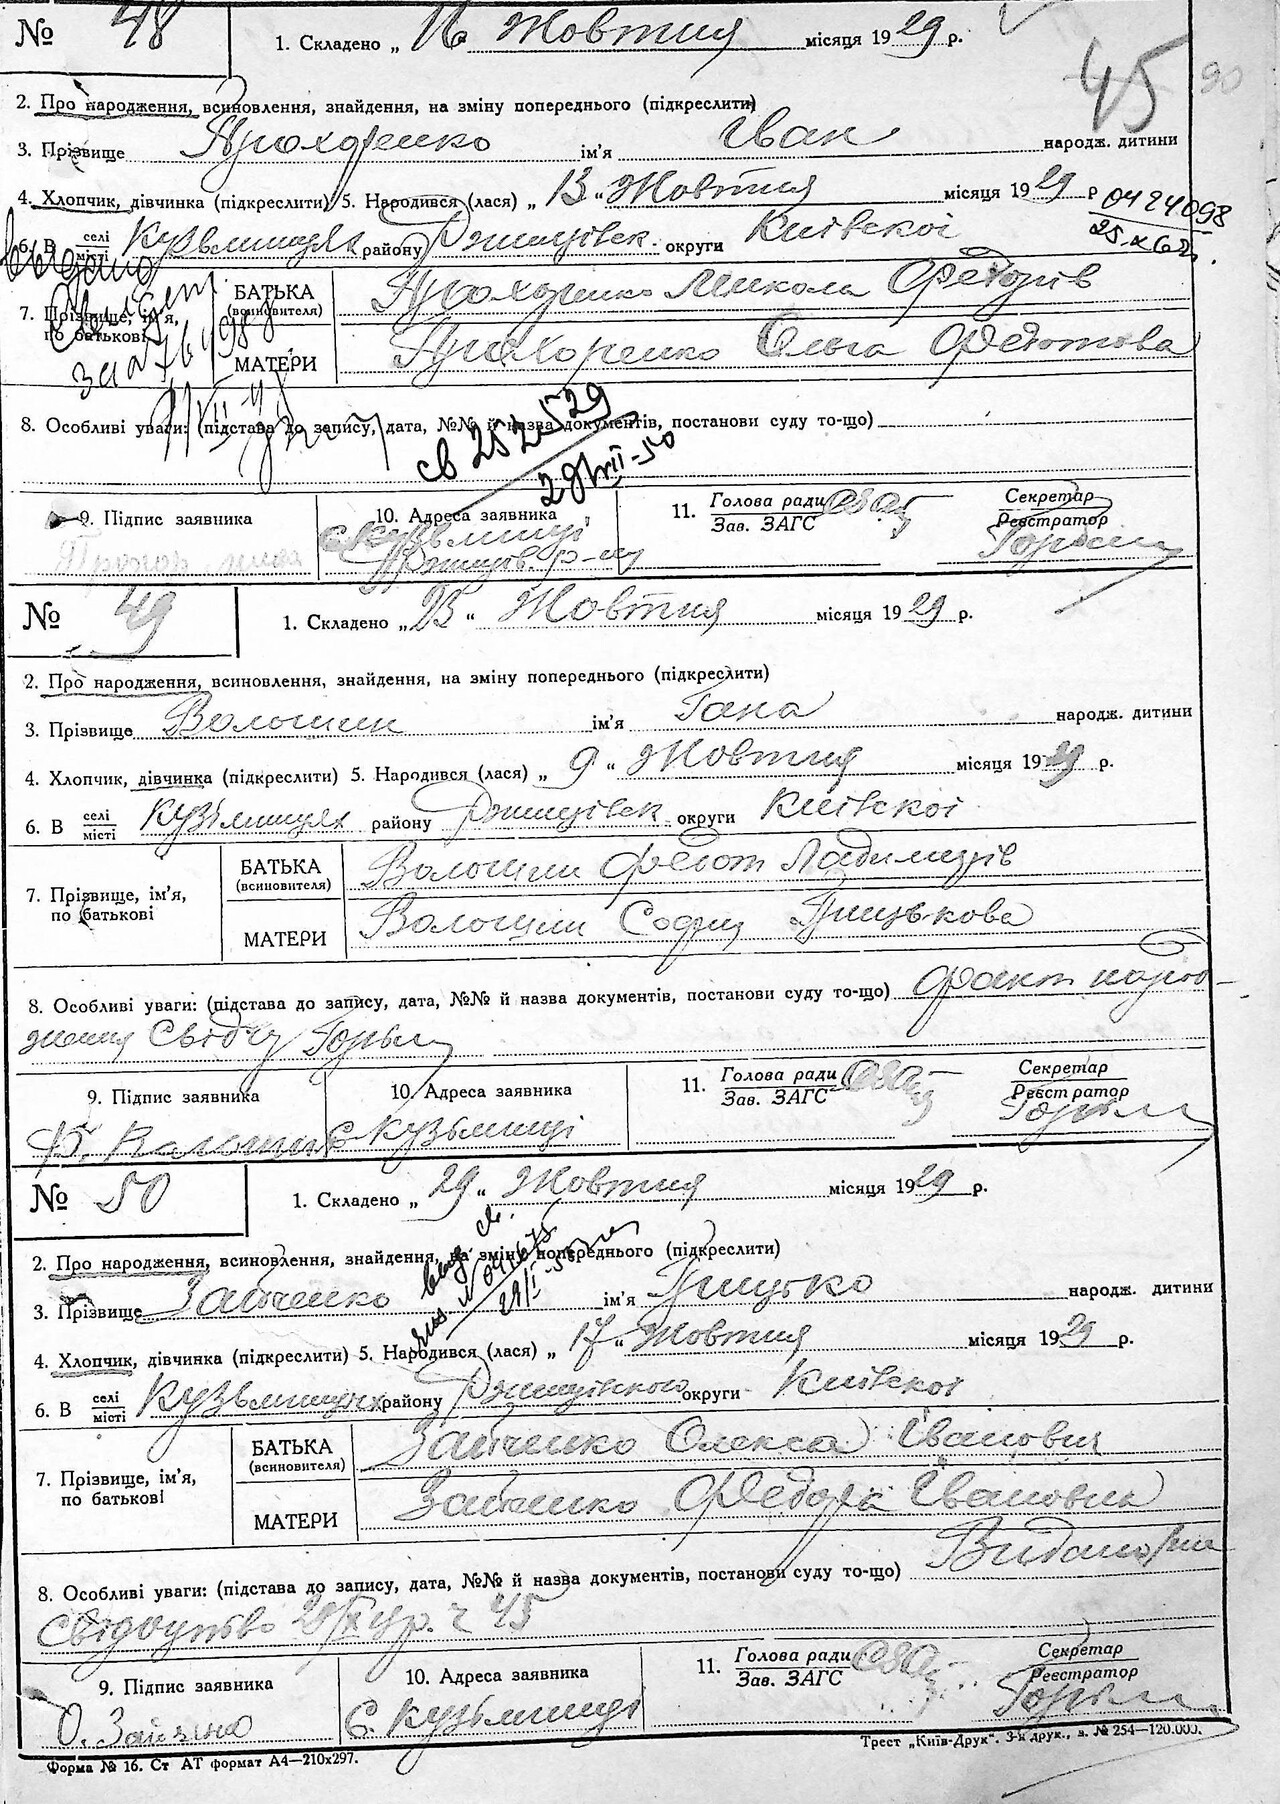 № 48 1. Складено „ 16 Жовтня місяця 1929 р.
45
90
2. Про народження, всиновлення, знайдення, на зміну попереднього (підкреслити)
3. Прізвище Прохоренко ім'я Іван народж. дитини
4. Хлопчик, дівчинка (підкреслити) 5. Народився (лася) „ 13 “ Жовтня місяця 1929 р
0424098
25-X 62г.
6. В селі місті Кузьминцях району Ржищівськ. округи Київскої
Выдано
7. Прізвище, ім'я, по батькові
БАТЬКА (всиновителя) Прохоренко Микола Федорів
МАТЕРИ Прохоренко Ольга Федотова
8. Особливі уваги: (підстава до запису, дата, №№ й назва документів, постанови суду то-що)
св 252529
9. Підпис заявника
10. Адреса заявника
с Кузьминці
Ржищів. р-ну
11. Голова ради Зав. ЗАГС
Секретар Реєстратор
№ 49 1. Складено „ 25 “ Жовтня місяця 1929 р.
2. Про народження, всиновлення, знайдення, на зміну попереднього (підкреслити)
3. Прізвище Волошин ім'я Гана народж. дитини
4. Хлопчик, дівчинка (підкреслити) 5. Народився (лася) „ 9 “ Жовтня місяця 1929 р.
6. В селі місті Кузьминцях району Ржищівськ округи Київскої
7. Прізвище, ім'я, по батькові
БАТЬКА (всиновителя) Волошин Федот Ладимирів
МАТЕРИ Волошин Софія Грицькова
8. Особливі уваги: (підстава до запису, дата, №№ й назва документів, постанови суду то-що) Факт народ-
ження Свідчу
9. Підпис заявника
Ф. Волошин
10. Адреса заявника
с Кузьминці
11. Голова ради Зав. ЗАГС
Секретар Реєстратор
№ 50 1. Складено „ 29 “ Жовтня місяця 1929 р.
2. Про народження, всиновлення, знайдення, на зміну попереднього (підкреслити)
3. Прізвище Зайченко ім'я Грицько народж. дитини
4. Хлопчик, дівчинка (підкреслити) 5. Народився (лася) „ 17 “ Жовтня місяця 1929 р.
6. В селі місті Кузьминцях району Ржищівского округи Київскої
7. Прізвище, ім'я, по батькові
БАТЬКА (всиновителя) Зайченко Олекса Іванович
МАТЕРИ Зайченко Федора Івановна
8. Особливі уваги: (підстава до запису, дата, №№ й назва документів, постанови суду то-що) Видано
свідоцтво ч 45
9. Підпис заявника
О. Зайченко
10. Адреса заявника
с. Кузьминці
11. Голова ради Зав. ЗАГС
Секретар Реєстратор
Форма № 16. Ст АТ формат А4—210x297.
Трест „Київ-Друк“. 3-я друк., з. № 254—120.000.